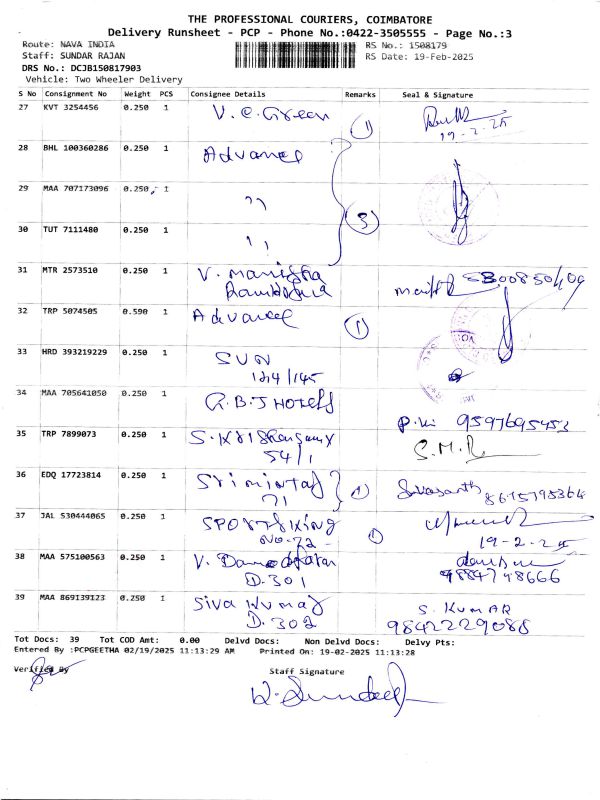 THE PROFESSIONAL COURIERS, COIMBATORE
Delivery Runsheet - PCP - Phone No.:0422-3505555 - Page No.:3
Route: NAVA INDIA RS No.: 1508179
Staff: SUNDAR RAJAN RS Date: 19-Feb-2025
DRS No.: DCJB1508179O3
Vehicle: Two Wheeler Delivery
S No Consignment No Weight PCS Consignee Details Remarks Seal & Signature
27 KVT 3254456 0.250 1 V. C. Green (1)
19-2-25
28 BHL 100360286 0.250 1 Advance
29 MAA 707173096 0.250 1 " (3)
30 TUT 7111480 0.250 1 "
31 MTR 2573510 0.250 1 V. Manisha
32 TRP 5074505 0.590 1 Advance (1)
33 HRD 393219229 0.250 1 SUN
124/145
34 MAA 705641050 0.250 1 R.B.J Hotels
P. 9597695453
35 TRP 7899073 0.250 1 S.
54/1 S.M.R
36 EDQ 17723814 0.250 1 (1)
71 8615798364
37 JAL 530444065 0.250 1 (1)
No-72 19-2-25
38 MAA 575100563 0.250 1 V. Damodharan
D.301 9884748666
39 MAA 869139123 0.250 1 Siva Kumar S. KUMAR
D.302 9842229088
Tot Docs: 39 Tot COD Amt: 0.00 Delvd Docs: Non Delvd Docs: Delvy Pts:
Entered By :PCPGEETHA 02/19/2025 11:13:29 AM Printed On: 19-02-2025 11:13:28
Verified By Staff Signature